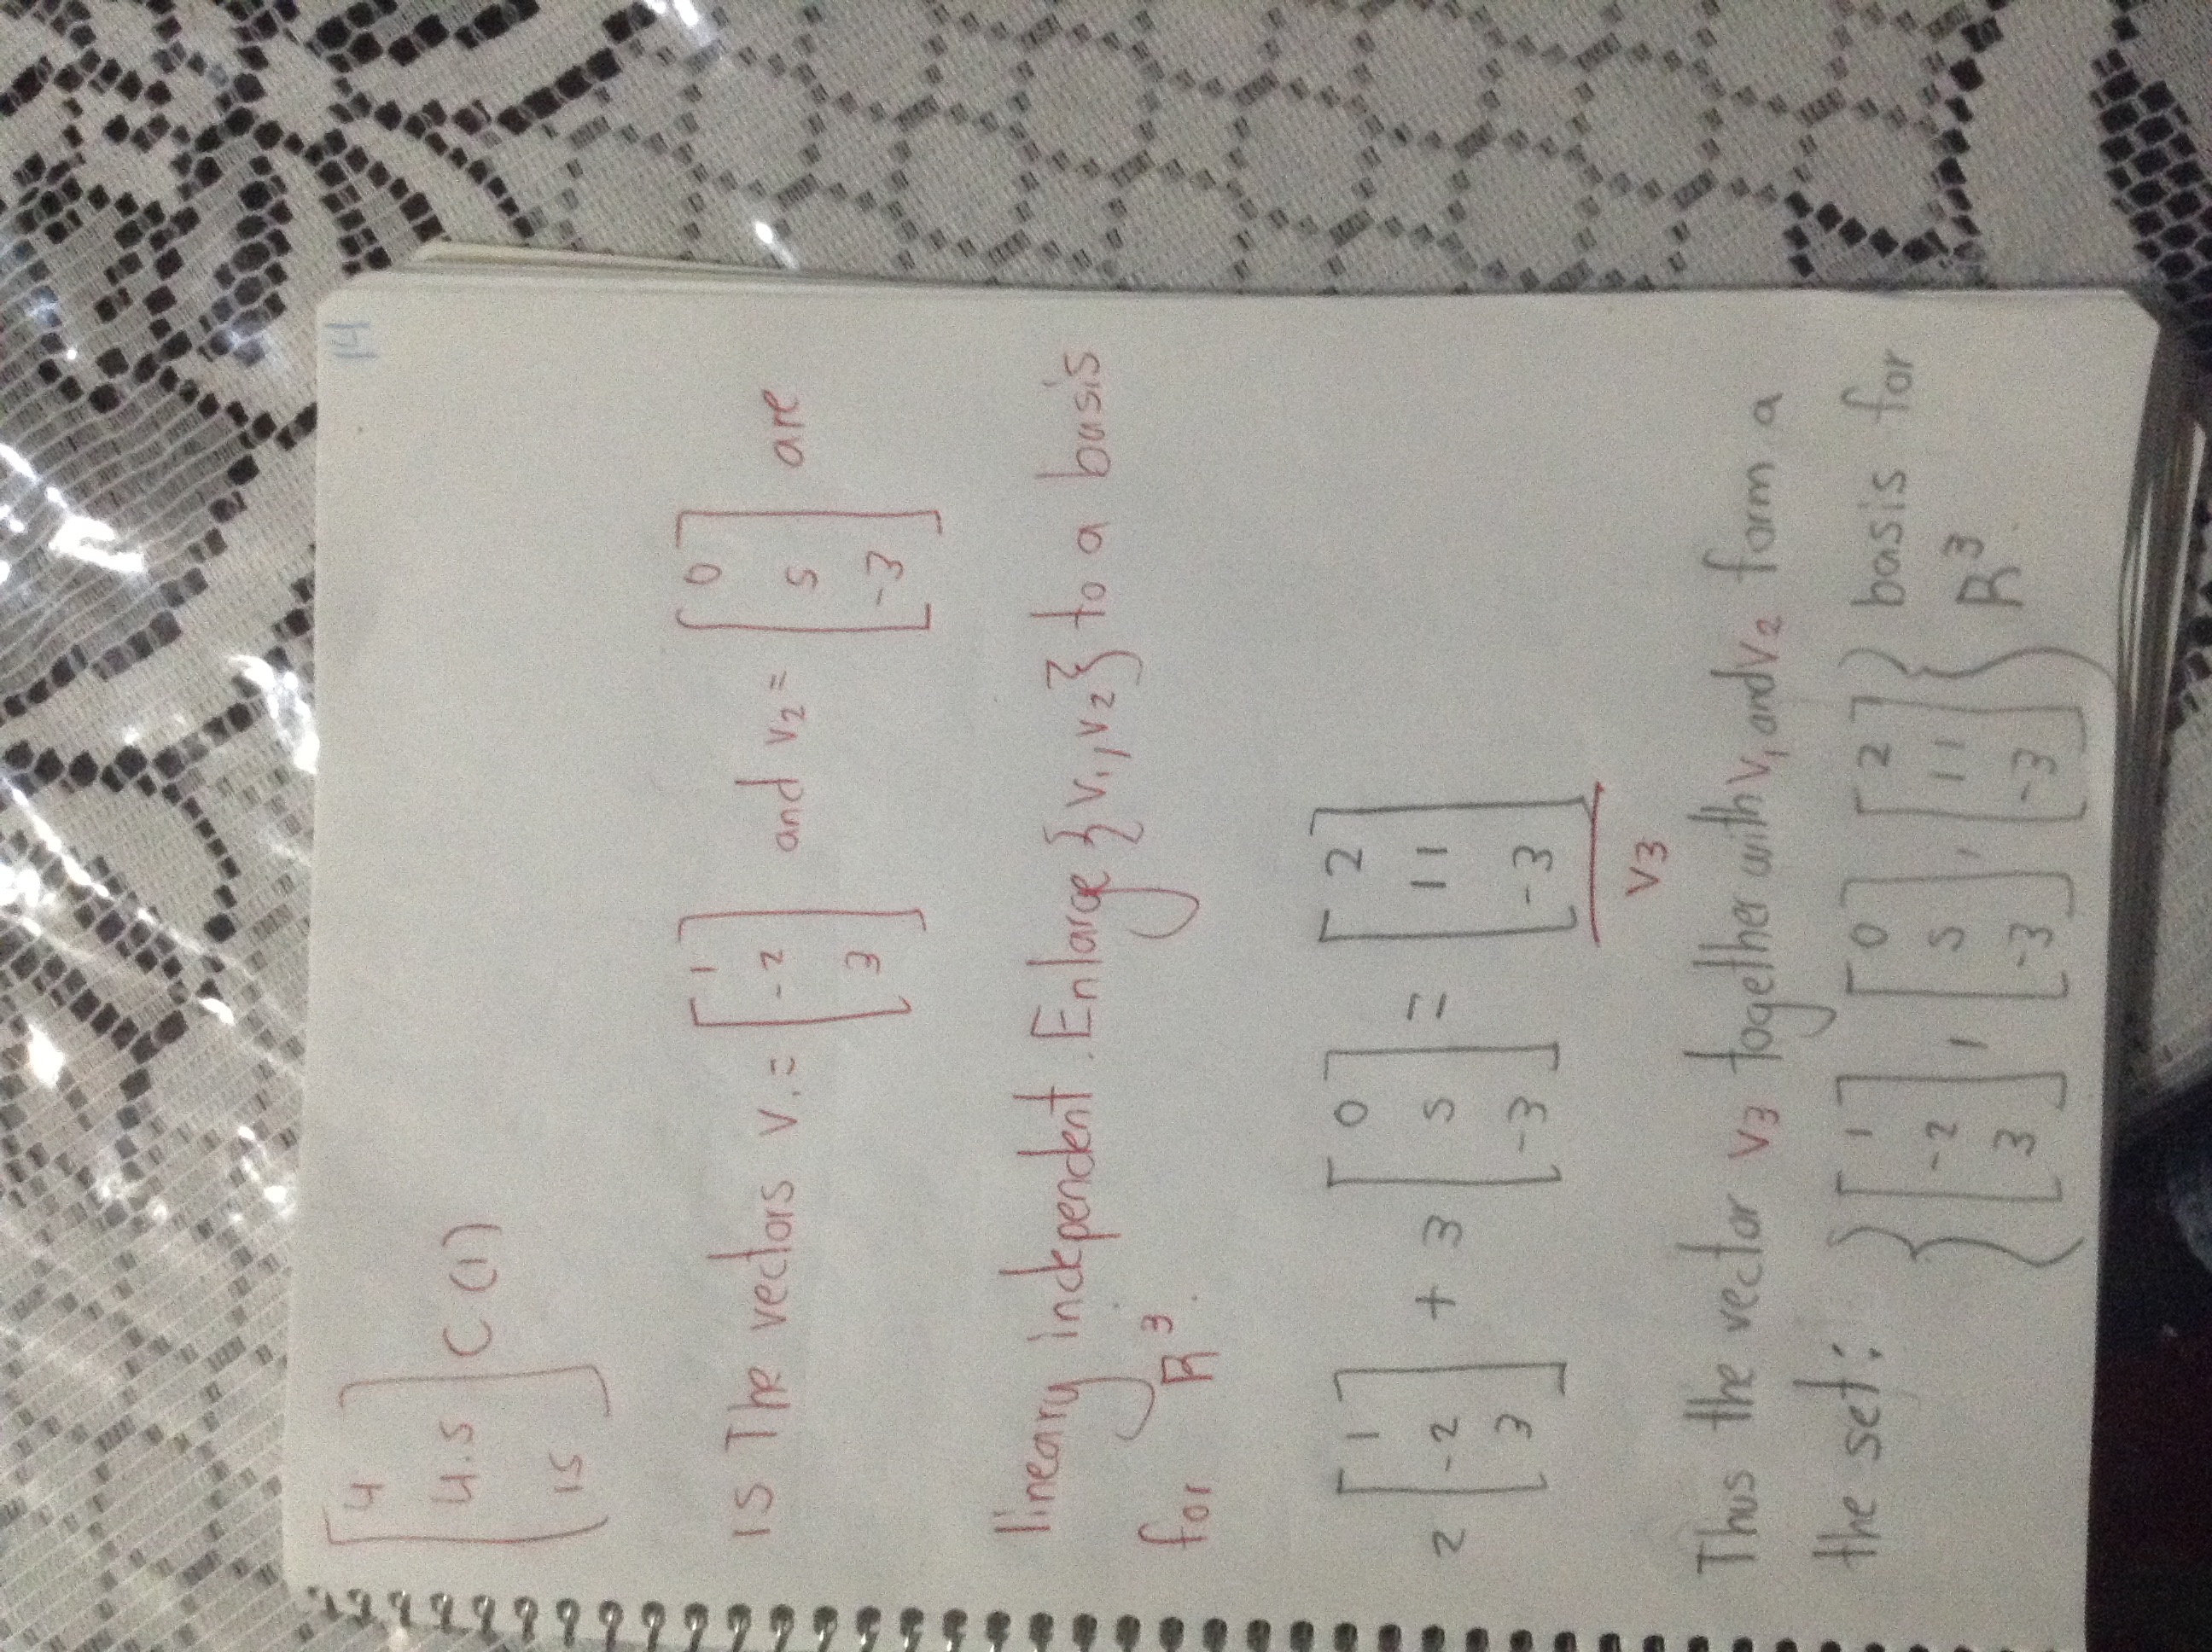 14
[4 4.5 15] C (1)
15 The vectors v1 = [1 -2 3] and v2 = [0 5 -3] are
lineary independent. Enlarge {v1, v2} to a basis
for R³.
2 [1 -2 3] + 3 [0 5 -3] = [2 11 -3]
v3
Thus the vector v3 together with v1 and v2 form a
the set: {[1 -2 3], [0 5 -3], [2 11 -3]} basis for
R³.